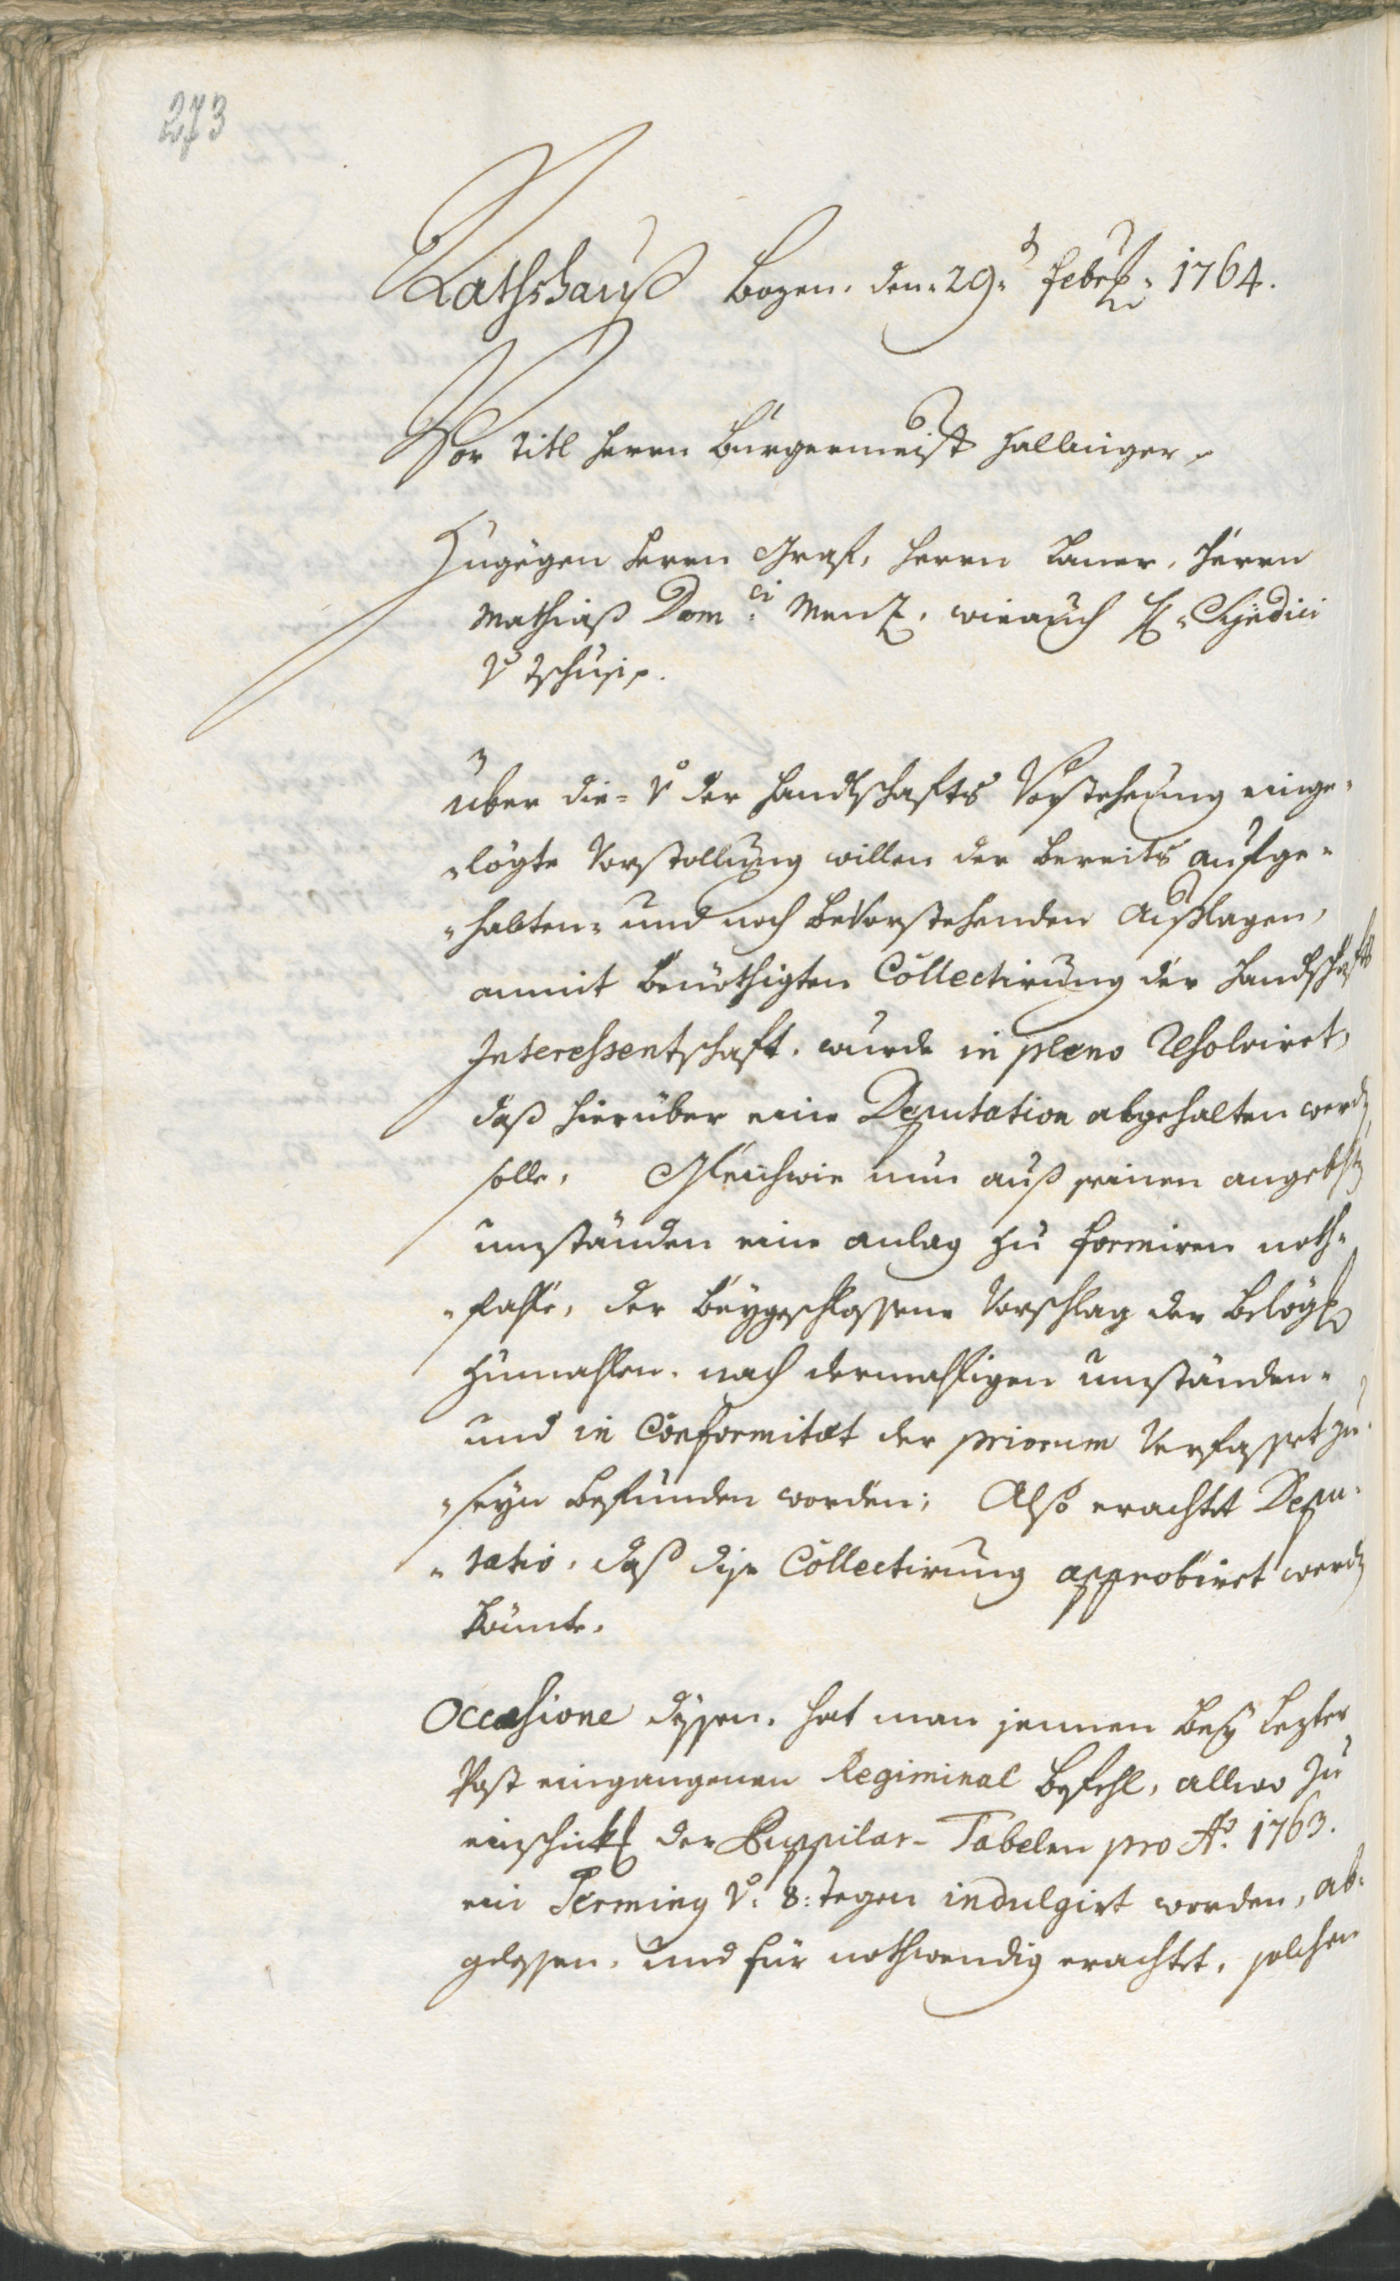 273
Rathshauß Bozen. den 29.t Febr. 1764.
Vor Titl Herrn Burgermeist Hallinger.
Zugegen Herrn Graf, Herrn Laner, Herrn
Mathiaß Domci Menz, wie auch H. Syndici
v Tschusi.
Über die= v der Landtschafts Vorstehung einge=
=lögte Vorstollung willen der bereits aufge=
=habten= und noch bevorstehenden Außlagen,
anmit benöthigten Collectirung der Landschafts
Interessentschaft. wurde in pleno resolviret,
daß hierüber eine Deputation abgehalten werd
solle. Gleichwie nun auß seinen angebst
umständen eine anlag zu formiren noth=
=falle, der beygeschlossene Vorschlag der Belögl
zumahlen. nach dermahligen umständen=
und in Conformitæt der priorum Verfasset zu=
=seyn befunden worden; Also erachtet Depu=
=tatio. daß dise Collectirung approbiret werd
könnte.
Occasione dessen. hat man jennen bey lezter
Post eingangenen Regiminal Befehl, allwo zu
einschikl der Puppilar-Tabelen pro Ao. 1763.
ein Terming v. 8: tagen indulgirt worden, ab=
gelesen. und für nothwendig erachtet, solchen